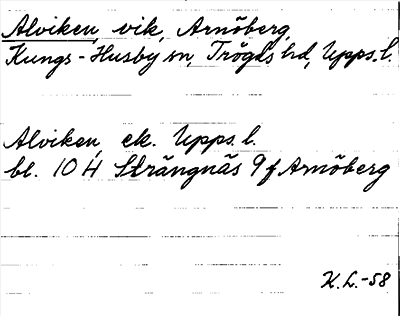 Alviken, vik, Arnöberg,
Kungs-Husby sn, Trögds hd, Upps. l.
Alviken, ek. Upps. l.
bl. 10 H Strängnäs 9 f Arnöberg
K.L.-58